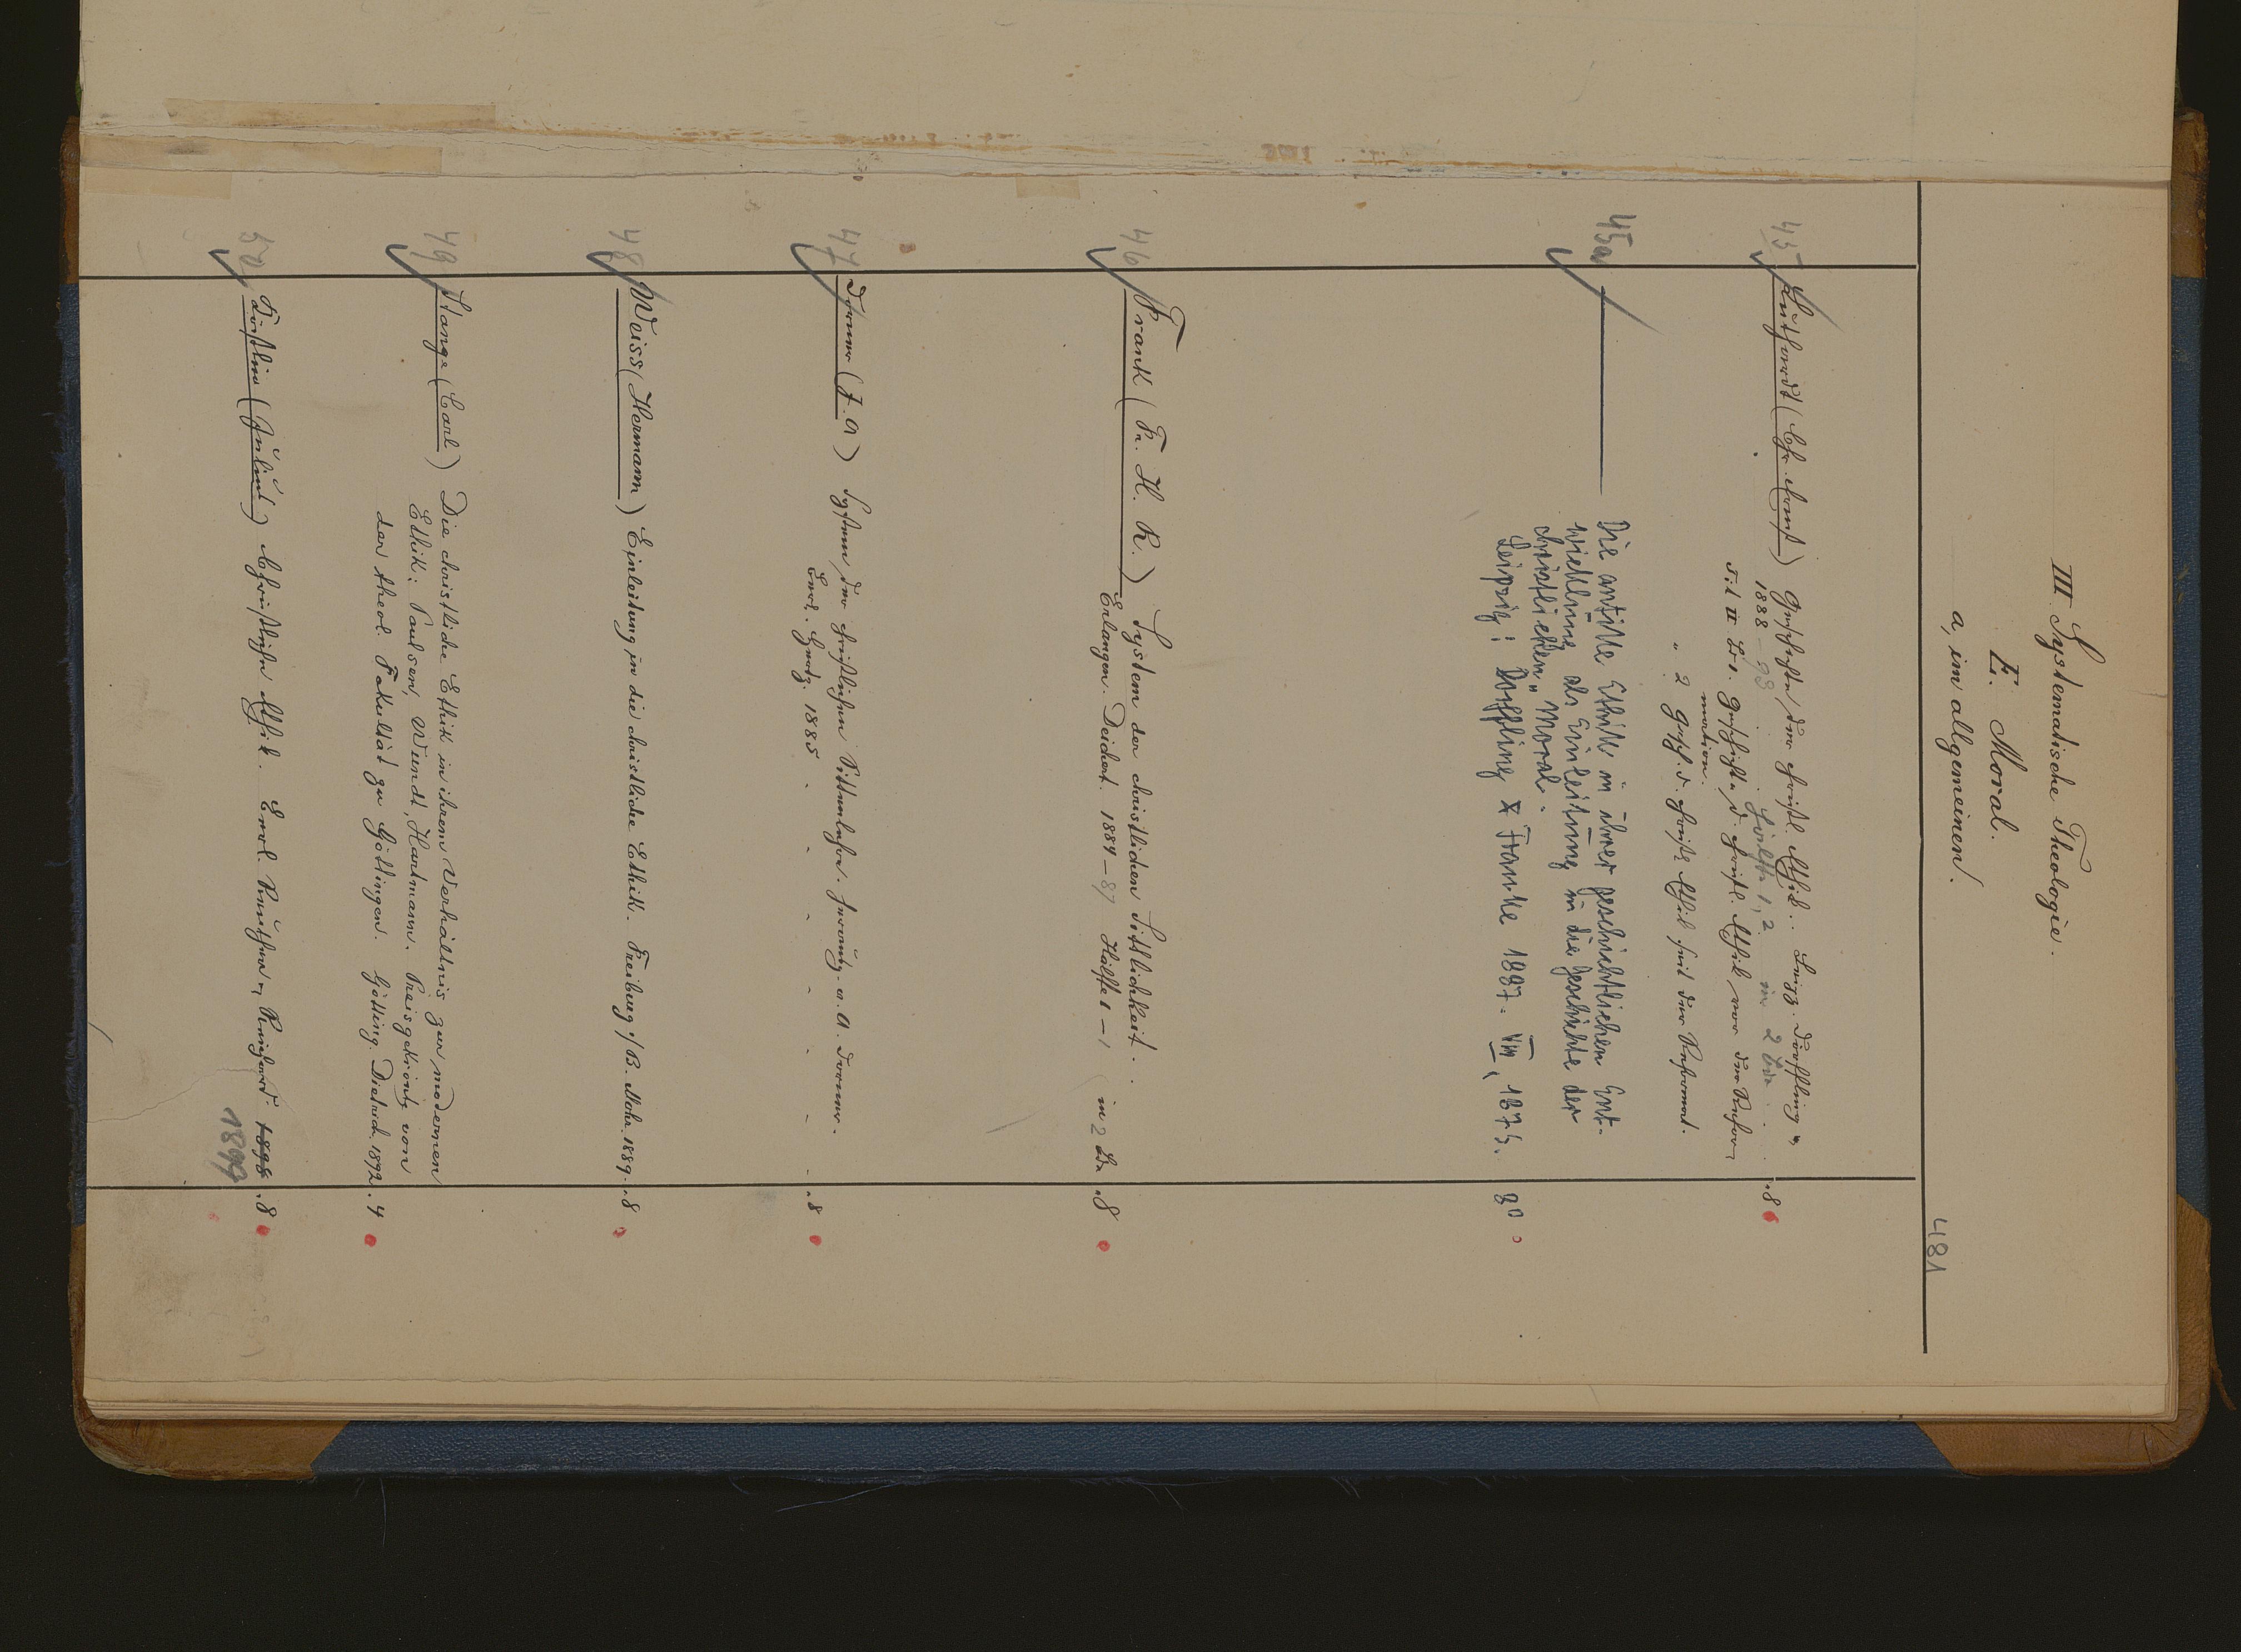 III. Systematische Theologie.
E. Moral.
a, im allgemeinen.
481
45 Luthardt (Chr. Ernst) Geschichte der christl. Ethik. Leipz. Dörffling u.
1888–93. Hälfte 1, 2 in 2 Bdn. .8
Geschichte d. christl. Ethik vor der Refor-
mation.
" 2 Gesch. d. christl. Ethik seit der Reformat.
45a ——— Die antike Ethik in ihrer geschichtlichen Ent-
wicklung als Einleitung in die Geschichte der
christlichen Moral.
Leipzig: Dörffling & Franke 1887. VIII, 187 S. 8°
46 Frank (Fr. H. R.) System der christlichen Sittlichkeit.
Erlangen. Deichert. 1884–87 Hälfte 1– in 2 Bdn .8
47 Dorner (J. A) System der christlichen Sittenlehre. Herausg. v. A. Dorner.
Berl. Hertz. 1885 .8
48 Weiss (Hermann) Einleitung in die christliche Ethik. Freiburg i/B. Mohr. 1889. .8
49 Stange (Carl) Die christliche Ethik in ihrem Verhältnis zur modernen
Ethik: Paulsen, Wundt, Hartmann. Preisgekrönt von
der theol. Fakultät zu Göttingen. Götting. Dieterich 1892. .4
50 Köstlin (Julius) Christliche Ethik. Berl. Reuther u. Reichard. 1898 .8
1899